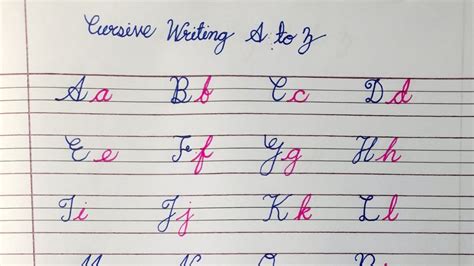 Cursive Writing A to z
A a B b C c D d
E e F f G g H h
I i J j K k L l
M N O P